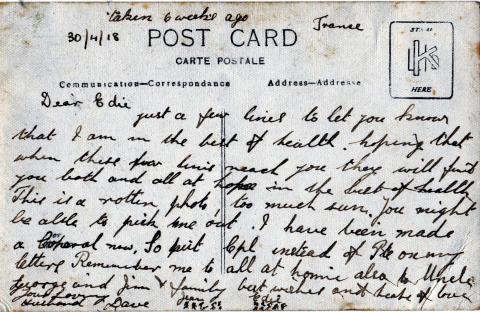 taken 6 weeks ago
30/4/18
France
POST CARD
CARTE POSTALE
STAMP
HERE
Communication—Correspondance
Address—Addresse
Dear Edie
just a few lines to let you know
that I am in the best of health. hoping that
when these few lines reach you they will find
you both and all at home in the best of health
This is a rotten photo, too much sun, you might
be able to pick me out. I have been made
a Corporal now, So put Cpl instead of Pte on my
letters Remember me to all at home also to Uncle
George and Jim & family best wishes and heaps of love
Your loving
Husband Dave
Jim
Edie